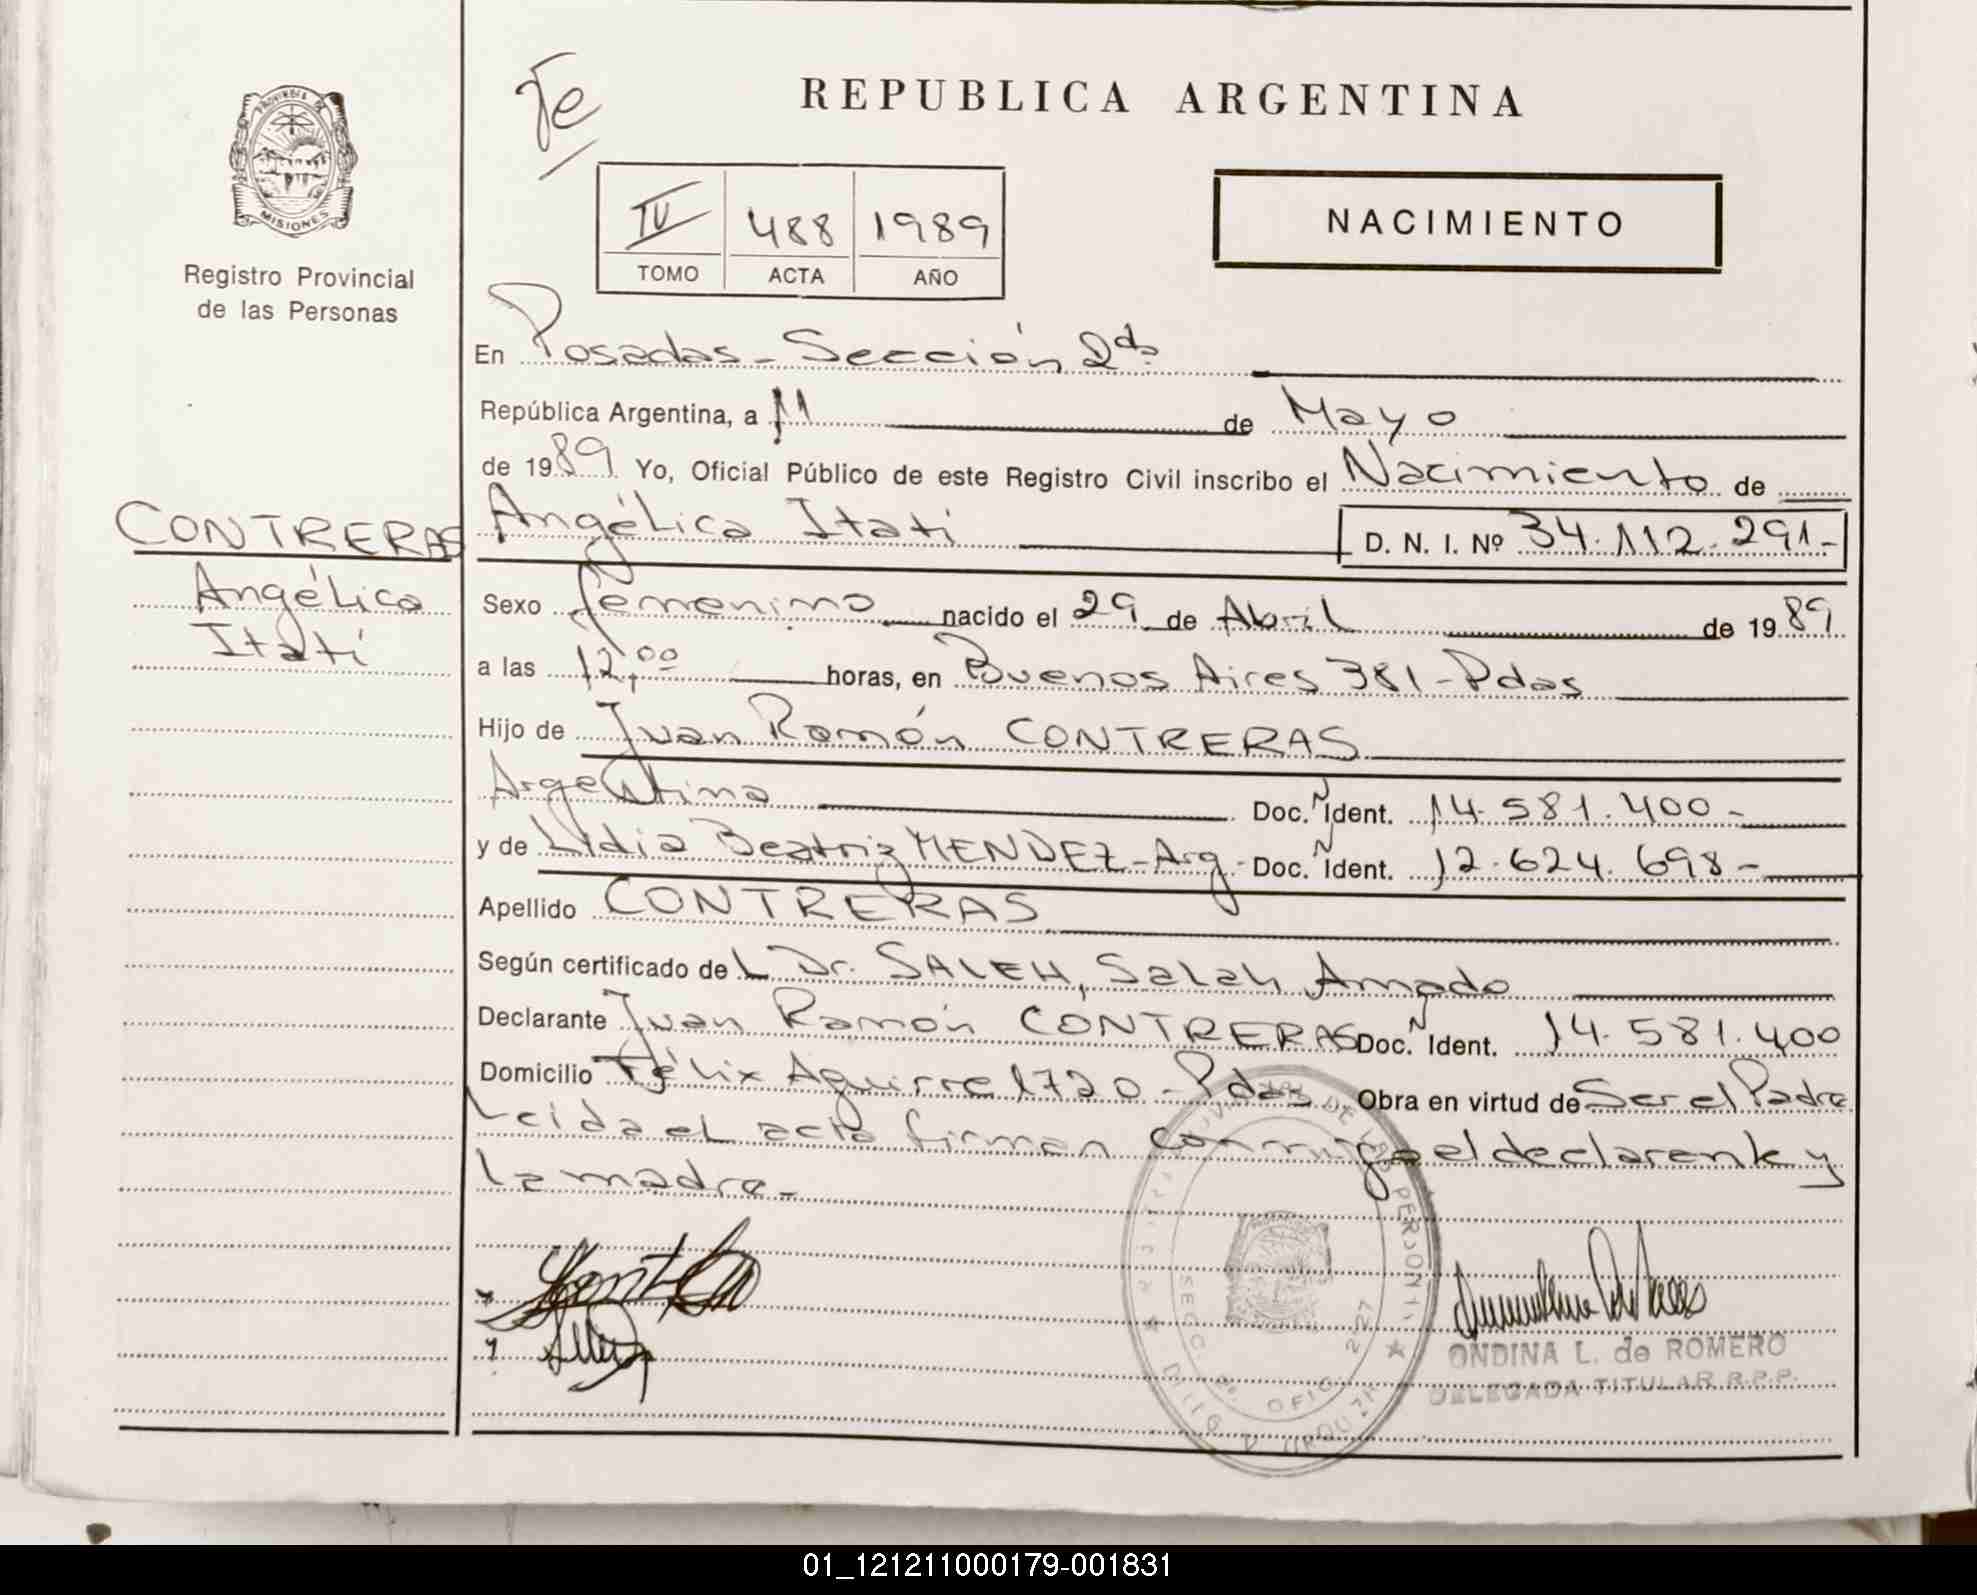 REPUBLICA ARGENTINA
PROVINCIA DE
MISIONES
Registro Provincial
de las Personas
IV 488 1989
TOMO ACTA AÑO
NACIMIENTO
En Posadas - Sección 2da
República Argentina, a 11 de Mayo
de 1989 Yo, Oficial Público de este Registro Civil inscribo el Nacimiento de
CONTRERAS
Angélica
Itatí
Angélica Itatí D. N. I. Nº 34.112.291-
Sexo femenino nacido el 29 de Abril de 1989
a las 12,00 horas, en Buenos Aires 381 - Pdas
Hijo de Juan Ramón CONTRERAS
Argentino Doc. Ident. 14.581.400-
y de Lidia Beatriz MENDEZ - Arg. Doc. Ident. 12.624.698-
Apellido CONTRERAS
Según certificado de L Dr. SALEH, Salah Amado
Declarante Juan Ramón CONTRERAS Doc. Ident. 14.581.400
Domicilio Félix Aguirre 1720 - Pdas Obra en virtud de Ser el Padre
Leida el acta firman conmigo el declarante y
la madre -
ONDINA L. de ROMERO
DELEGADA TITULAR R.P.P.
01_121211000179-001831